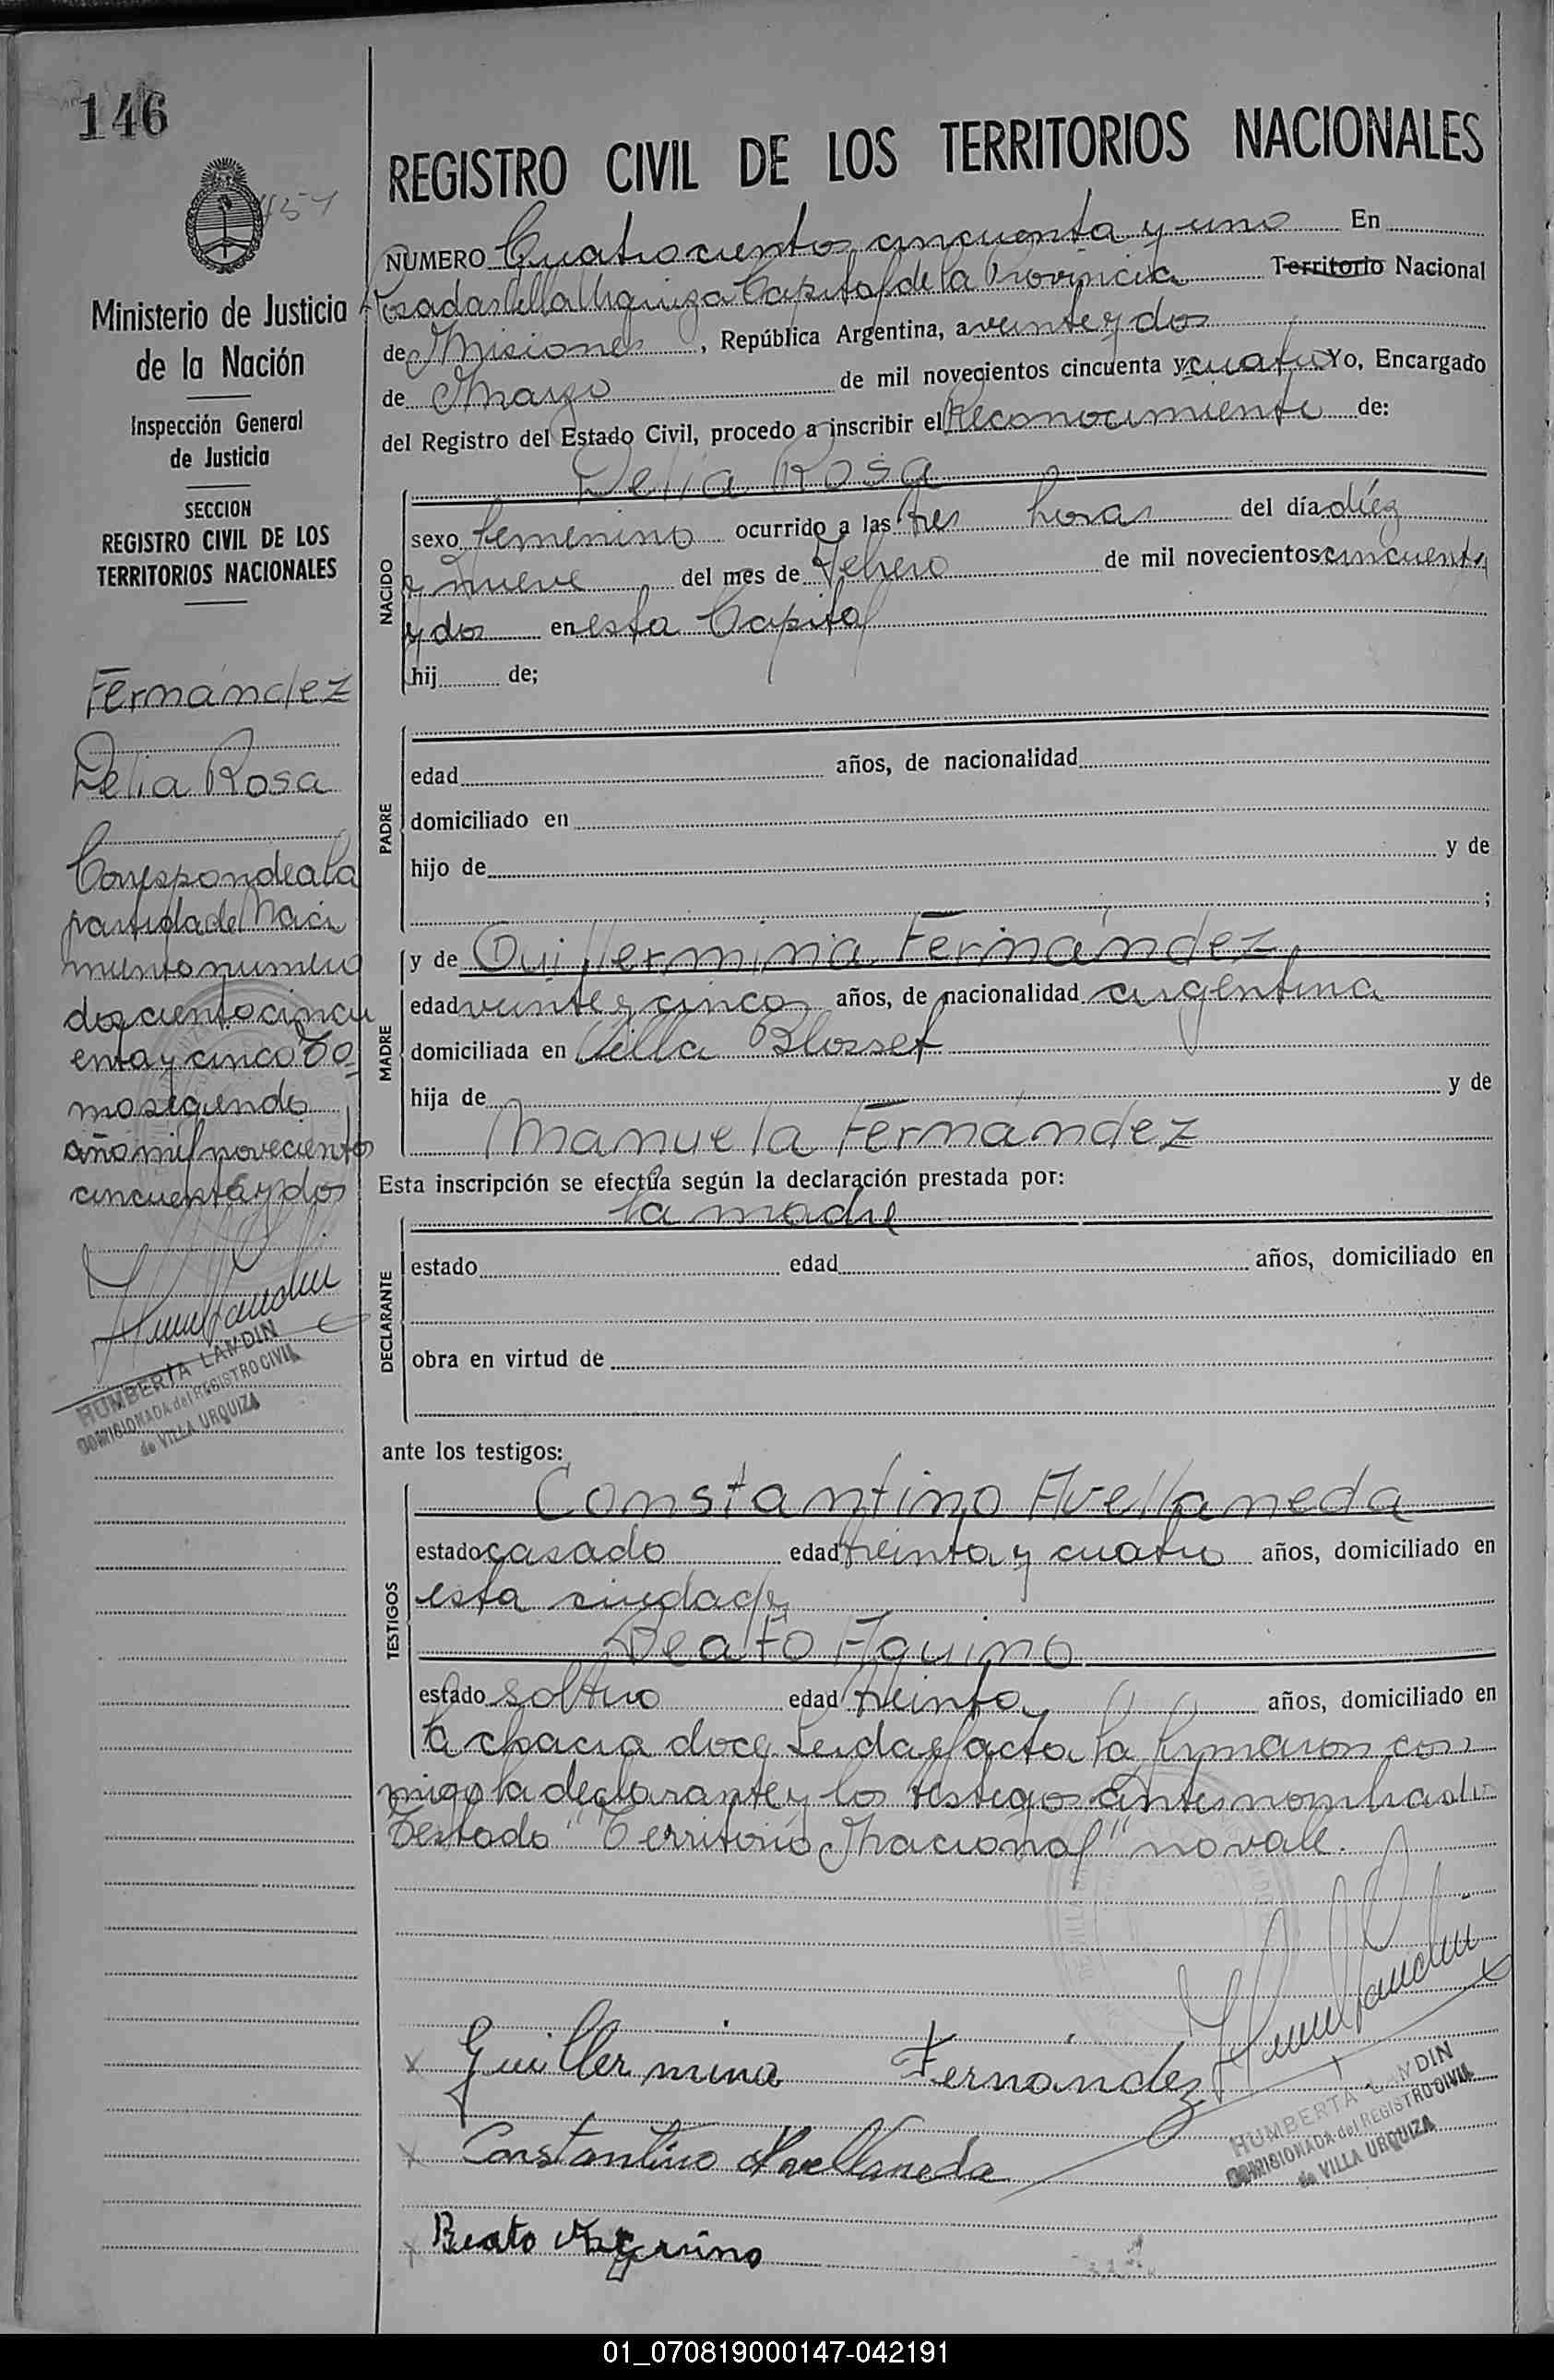 146
451
Ministerio de Justicia
de la Nación
Inspección General
de Justicia
SECCION
REGISTRO CIVIL DE LOS
TERRITORIOS NACIONALES
Fernández
Delia Rosa
Corresponde a la
partida de Naci
miento numero
doscientocincu
enta y cinco To
mo segundo
año mil novecientos
cincuenta y dos
HUMBERTA LANDIN
COMISIONADA del REGISTRO CIVIL
de VILLA URQUIZA
REGISTRO CIVIL DE LOS TERRITORIOS NACIONALES
NUMERO Cuatrocientos cincuenta y uno En
Posadas Villa Urquiza Capital de la Provincia Territorio Nacional
de Misiones, República Argentina, a veinte y dos
de Marzo de mil novecientos cincuenta y cuatro Yo, Encargado
del Registro del Estado Civil, procedo a inscribir el Reconocimiento de:
Delia Rosa
NACIDO
sexo femenino ocurrido a las tres horas del día diez
y nueve del mes de Febrero de mil novecientos cincuenta
y dos en esta Capital
hij de;
PADRE
edad años, de nacionalidad
domiciliado en
hijo de y de
;
y de Guillermina Fernández
MADRE
edad veinte y cinco años, de nacionalidad argentina
domiciliada en Villa Blosset
hija de y de
Manuela Fernández
Esta inscripción se efectúa según la declaración prestada por:
la madre
DECLARANTE
estado edad años, domiciliado en
obra en virtud de
ante los testigos:
Constantino Avellaneda
TESTIGOS
estado casado edad treinta y cuatro años, domiciliado en
esta ciudad y
Beato Aquino
estado soltero edad treinta años, domiciliado en
la chacra doce. Leida el acta la firmaron con
migo la declarante y los testigos antes nombrados
Testado "Territorio Nacional" no vale.
x Guillermina Fernández
x Constantino Avellaneda
x Beato Aquino
HUMBERTA LANDIN
COMISIONADA del REGISTRO CIVIL
de VILLA URQUIZA
01_070819000147-042191